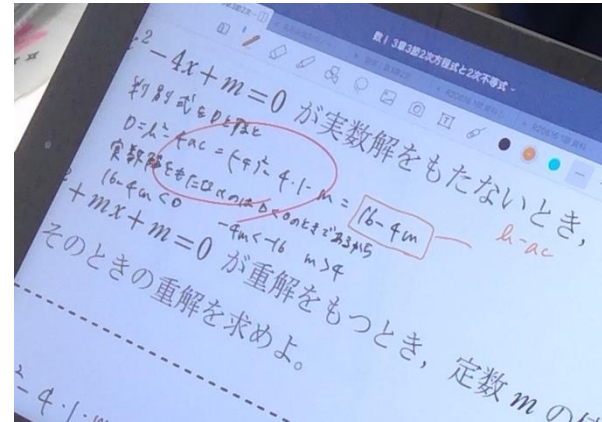 数Ⅰ 3章3節2次方程式と2次不等式
² − 4x + m = 0 が実数解をもたないとき,
判別式をDとすると
D = b² − 4ac = (−4)² − 4・1・m = 16 − 4m
b − ac
実数解をもたないのは D < 0 のときであるから
16 − 4m < 0
−4m < −16 m > 4
+ mx + m = 0 が重解をもつとき, 定数 m の
そのときの重解を求めよ。
² − 4・1・m